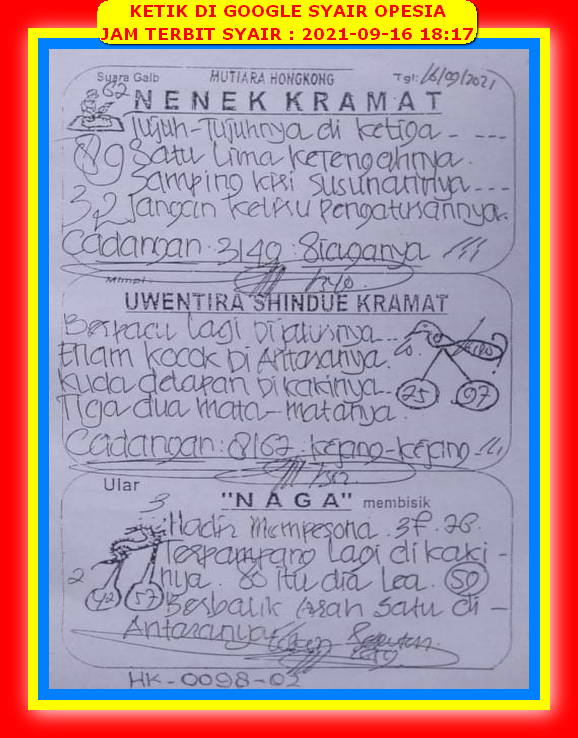 KETIK DI GOOGLE SYAIR OPESIA
JAM TERBIT SYAIR : 2021-09-16 18:17
Suara Gaib MUTIARA HONGKONG Tgl: 16/09/2021
62
NENEK KRAMAT
Tujuh-Tujuhnya di ketiga - ---
89 Satu Lima Ketengahnya.
Samping kiri susunannya ---
32 Jangan keliru Pengaturannya.
Cadangan 3149 Siaganya
Mimpi
UWENTIRA SHINDUE KRAMAT
Berpacu lagi Di jalurnya...
Enam kocok Di Antaranya.
Kuda delapan Di kakinya..
25 97
Tiga dua mata-matanya.
Cadangan: 8162 - kejang-kejang
Ular
3 "NAGA" membisik
Hadir Mempesona. 37. 78.
Terpampang lagi di kaki -
nya. 80 itu dia Lea. 50
2 42 57
Berbalik Arah Satu di -
Antaranya
HK-0098-02